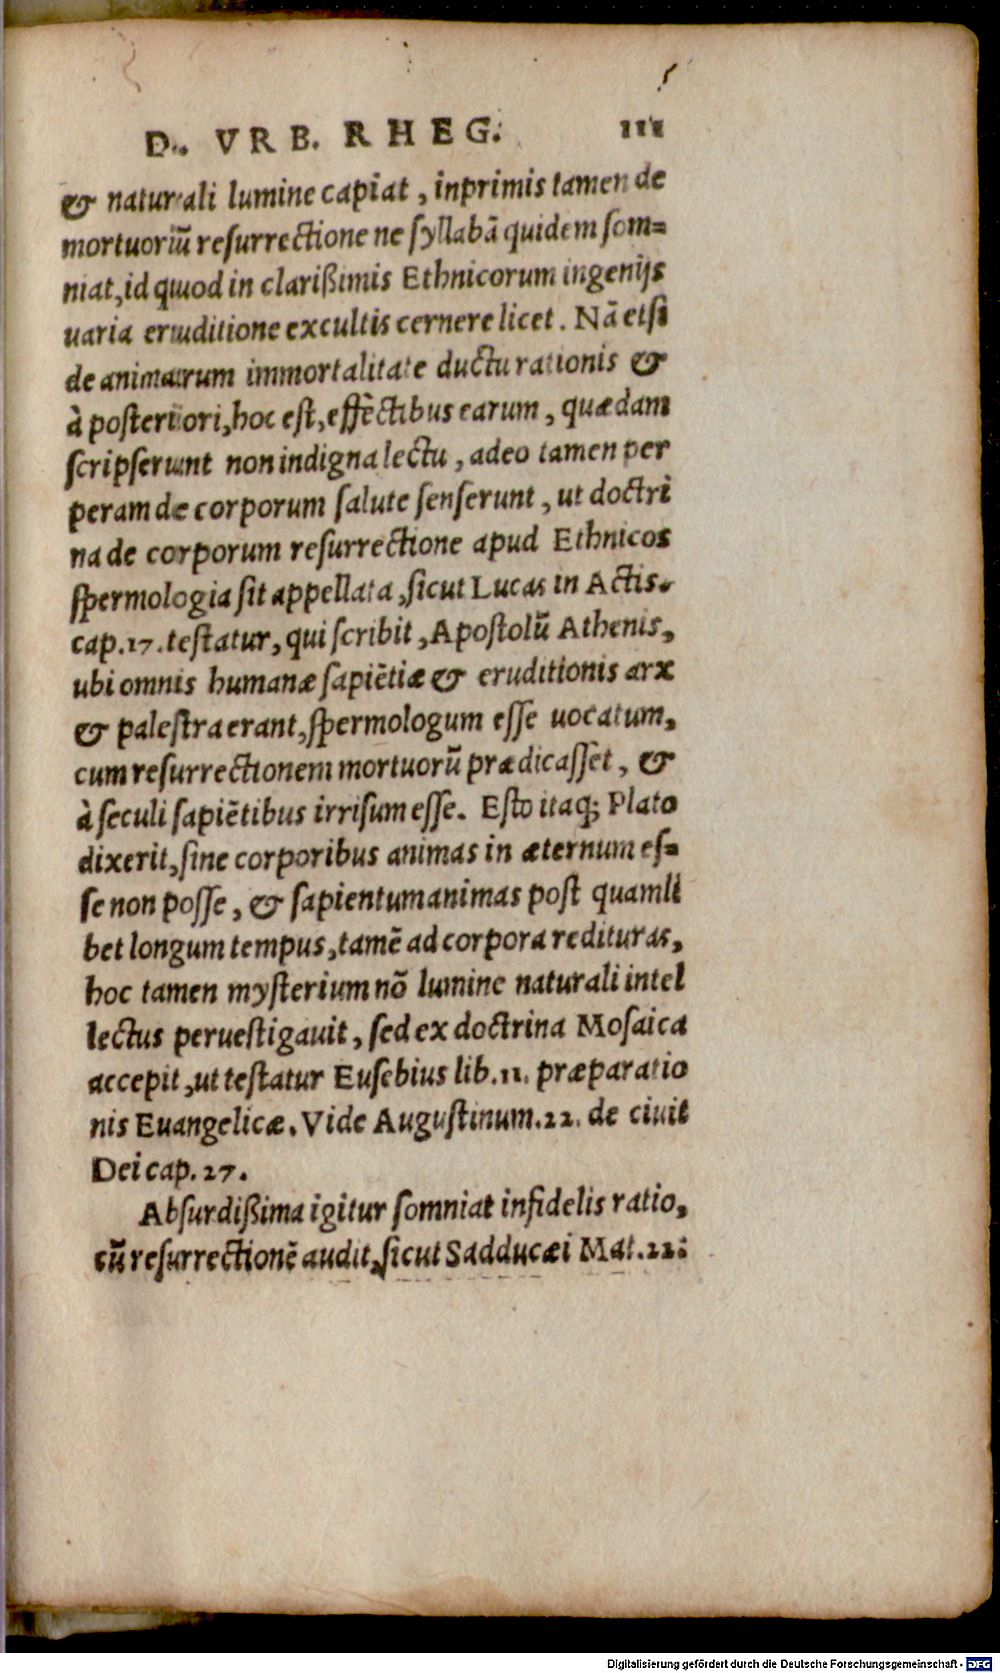 D. VRB. RHEG. 111
& naturali lumine capiat, inprimis tamen de
mortuoriũ resurrectione ne syllabã quidem som=
niat, id quod in clarißimis Ethnicorum ingenijs
uaria eruditione excultis cernere licet. Nã etsi
de animarum immortalitate ductu rationis &
à posteriori, hoc est, effectibus earum, quædam
scripserunt non indigna lectu, adeo tamen per
peram de corporum salute senserunt, ut doctri
na de corporum resurrectione apud Ethnicos
spermologia sit appellata, sicut Lucas in Actis.
cap. 17. testatur, qui scribit, Apostolũ Athenis,
ubi omnis humanæ sapiẽtiæ & eruditionis arx
& palestra erant, spermologum esse uocatum,
cum resurrectionem mortuorũ prædicasset, &
à seculi sapiẽtibus irrisum esse. Esto itaq; Plato
dixerit, sine corporibus animas in æternum es=
se non posse, & sapientum animas post quamli
bet longum tempus, tamẽ ad corpora redituras,
hoc tamen mysterium nõ lumine naturali intel
lectus peruestigauit, sed ex doctrina Mosaica
accepit, ut testatur Eusebius lib. 11. præparatio
nis Euangelicæ. Vide Augustinum. 22. de ciuit
Dei cap. 27.
Absurdißima igitur somniat infidelis ratio,
cũ resurrectionẽ audit, sicut Sadducæi Mat. 22:
Digitalisierung gefördert durch die Deutsche Forschungsgemeinschaft - DFG